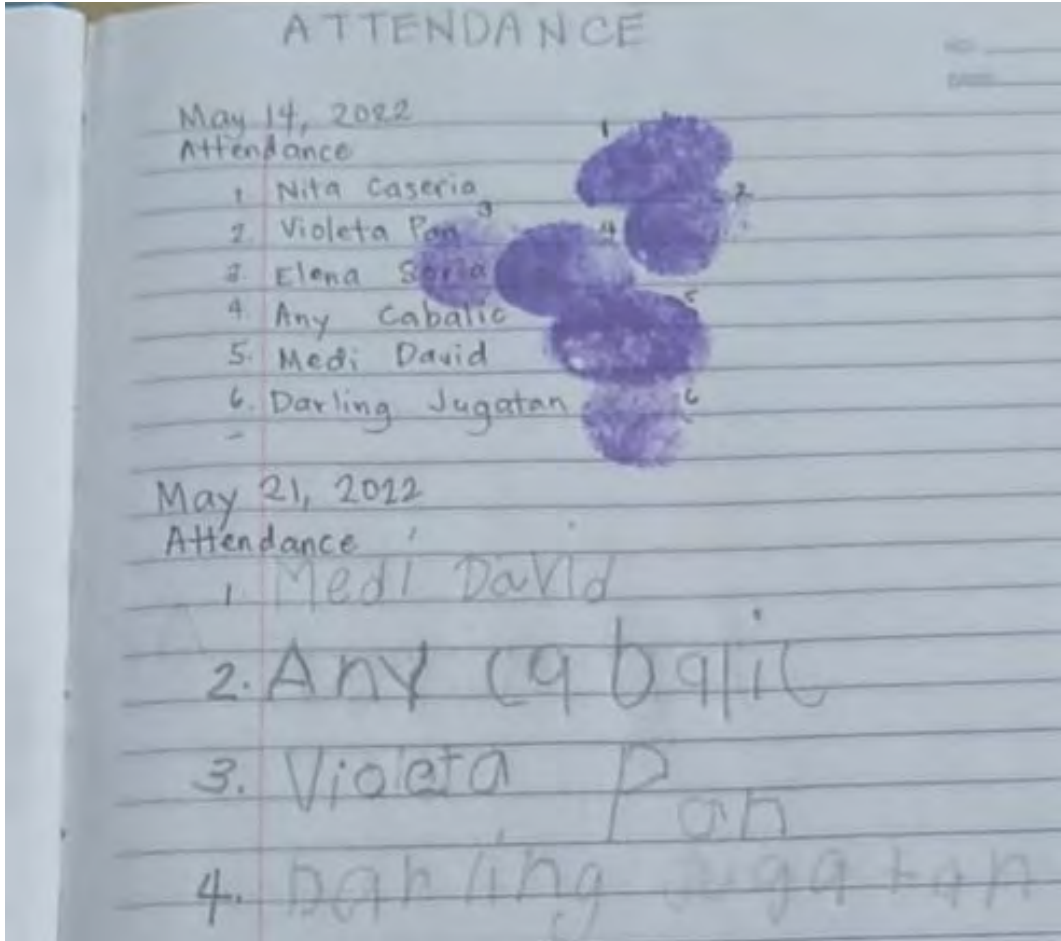 ATTENDANCE
May 14, 2022
Attendance
1 Nita Caseria
2. Violeta Pan
3. Elena Soria
4. Any Cabalic
5. Medi David
6. Darling Jugatan
1
2
3
4
5
6
May 21, 2022
Attendance
1 Medi David
2. Any Cabalic
3. Violeta Pan
4. Darling Jugatan